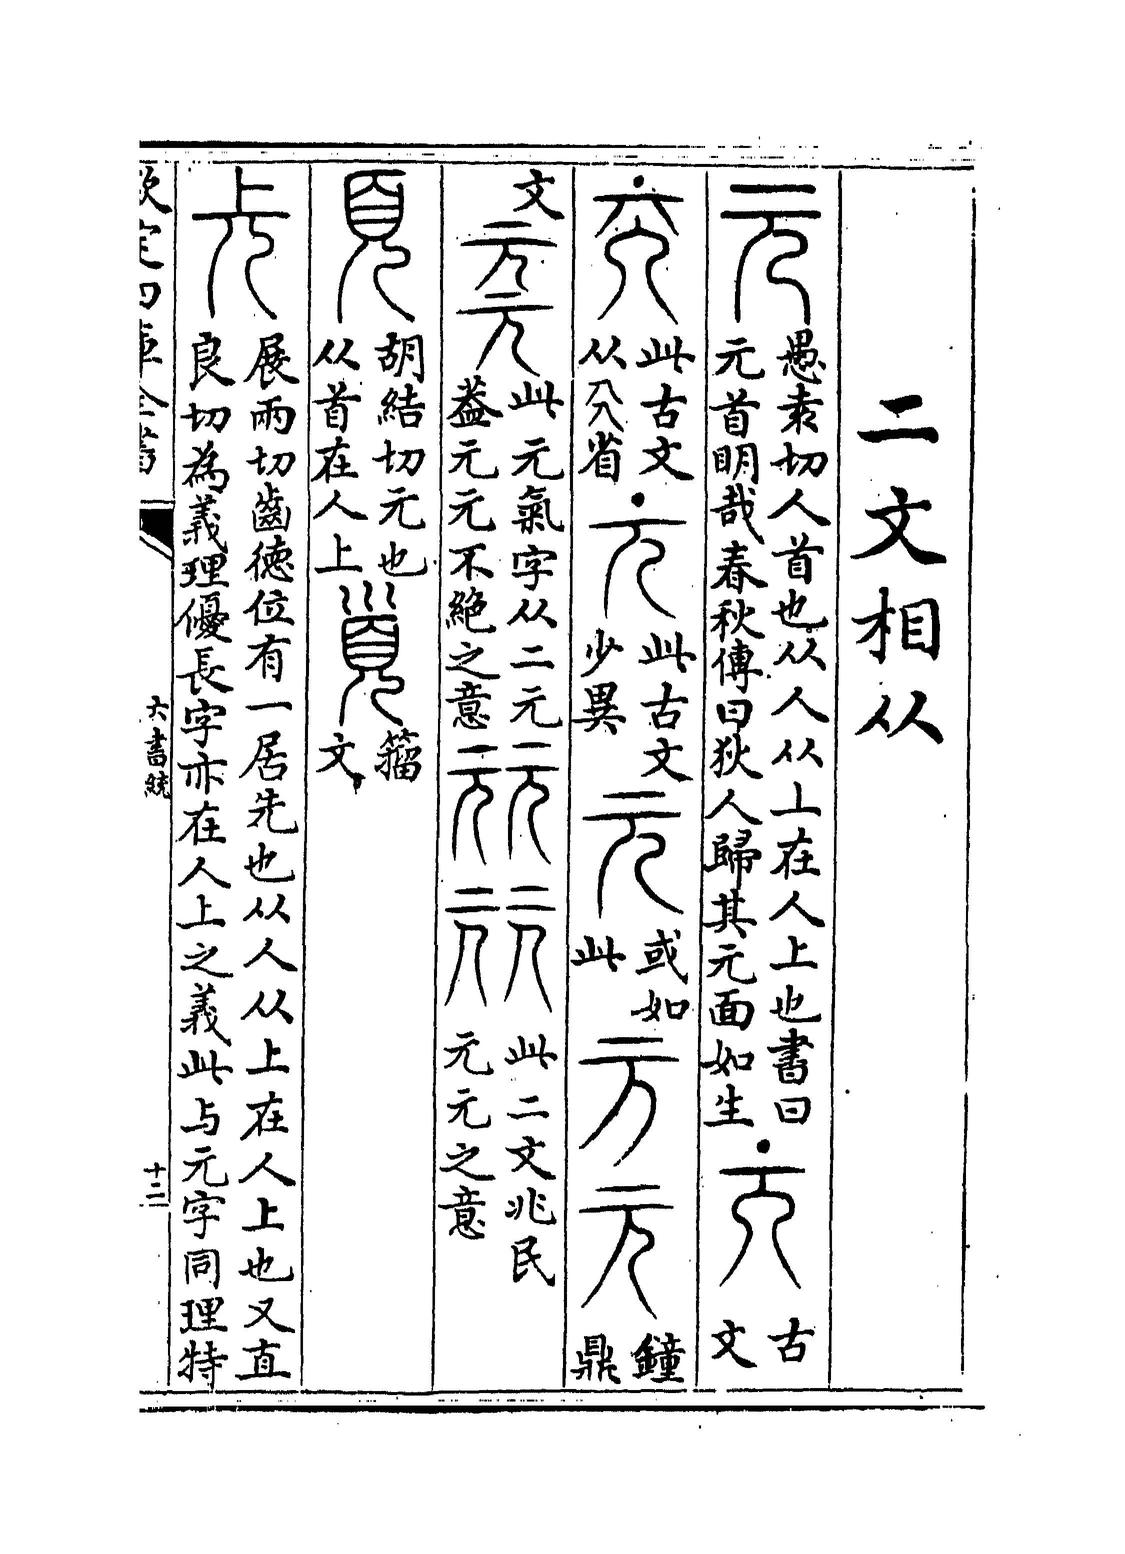 二文相从
元愚袁切人首也从人从丄在人上也書曰
元首明哉春秋傳曰狄人歸其元面如生
元古
文
元此古文
从省
元此古文
少異
元或如
此
元元鐘
鼎
文
元元此元氣字从二元
葢元元不絶之意
元元元元此二文兆民
元元之意
頁胡結切元也
从首在人上
籀
文
展兩切齒徳位有一居先也从人从上在人上也又直
良切為義理優長字亦在人上之義此与元字同理特
欽定四庫全書
六書統
十二